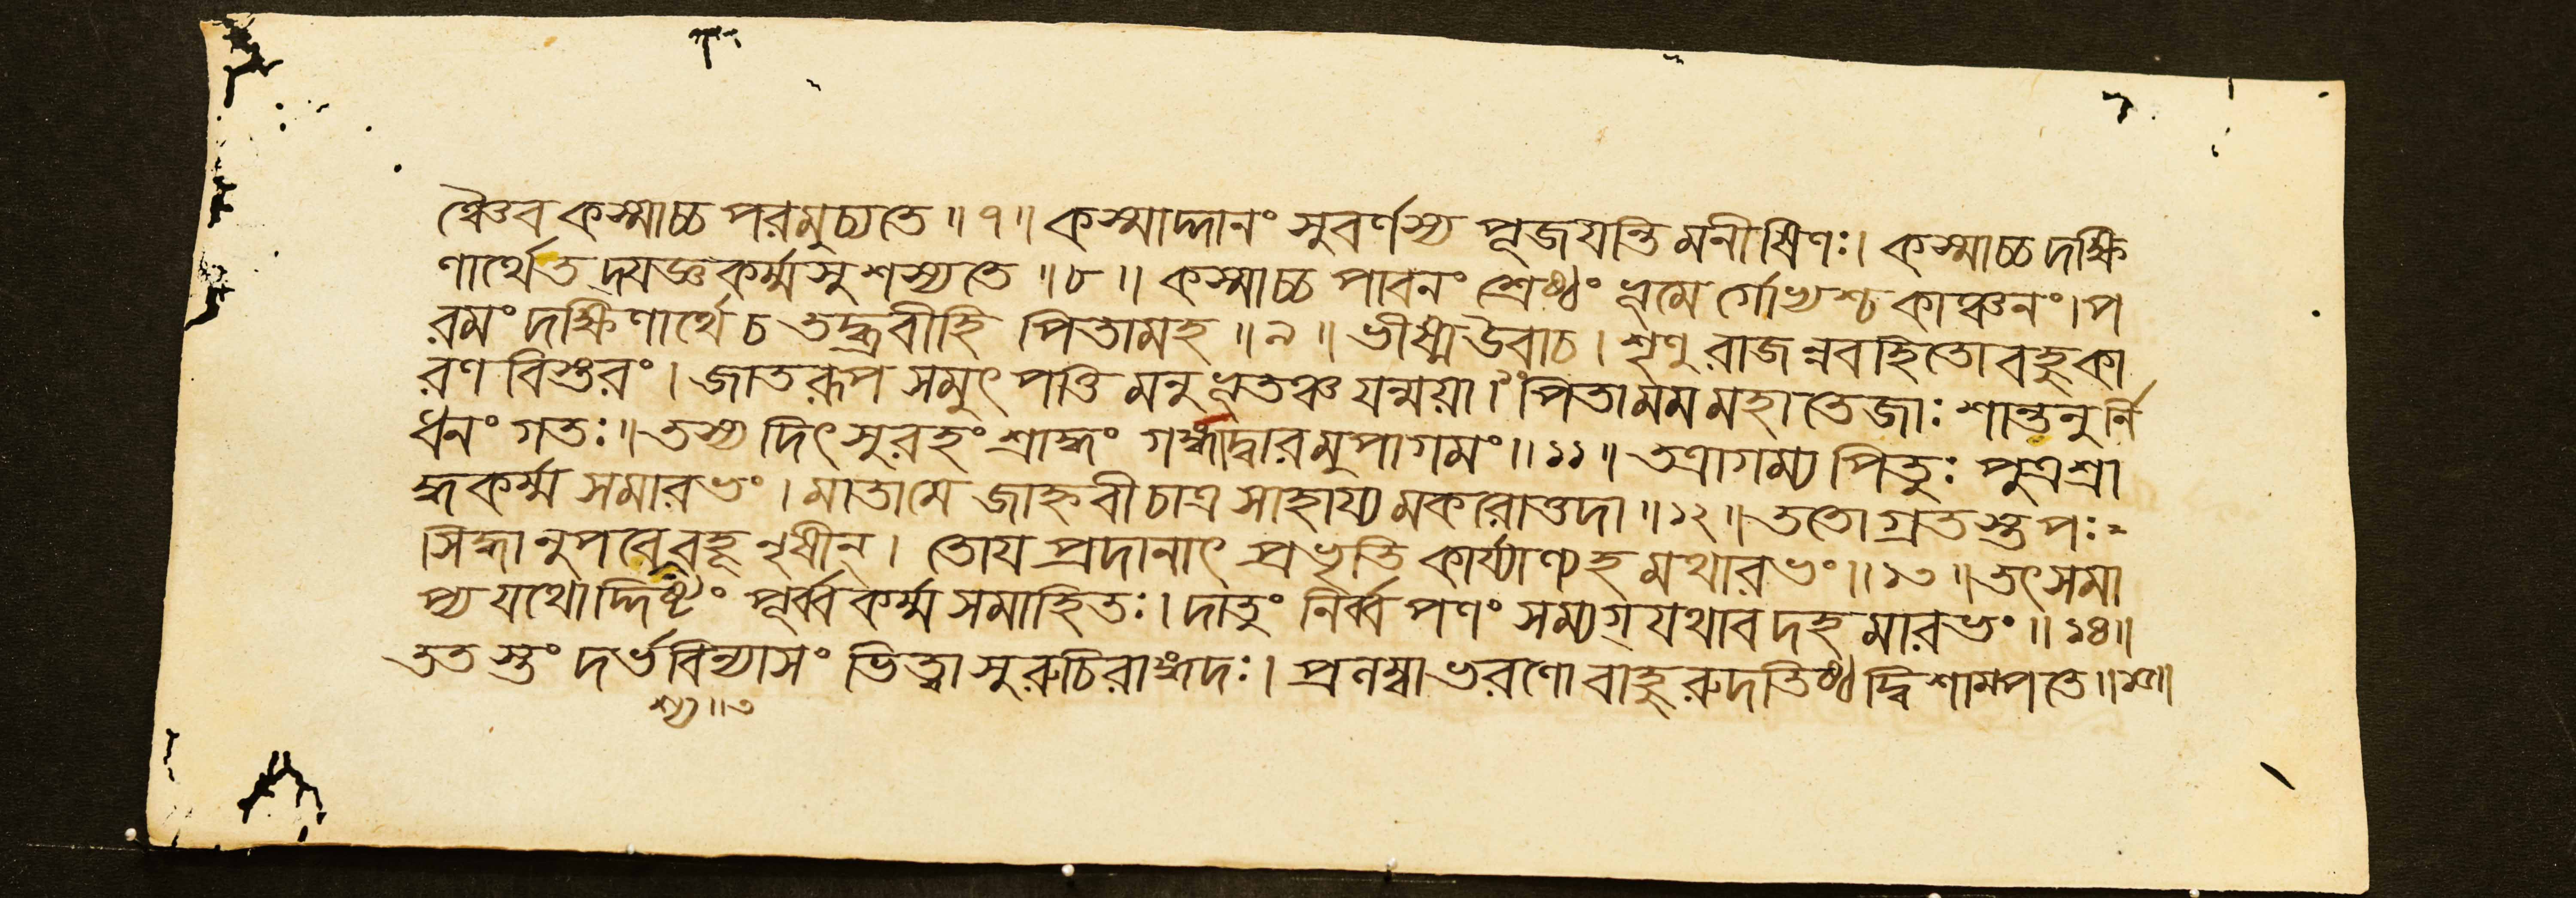 ঞ্চৈব কস্মাচ্চ পরমুচ্যতে ॥ ৭ ॥ কস্মাদ্দানং সুবর্ণস্য পূজযন্তি মনীষিণঃ। কস্মাচ্চ দক্ষি
ণার্থেত দ্যজ্ঞকর্ম্মসু শস্যতে ॥ ৮ ॥ কস্মাচ্চ পাবনং শ্রেষ্ঠং ভূমে র্গোভ্যশ্চ কাঞ্চনং। প
রমং দক্ষিণার্থে চ তদ্ব্রবীহি পিতামহ ॥ ৯ ॥ ভীষ্ম উবাচ। শৃণু রাজন্নবহিতো বহুকা
রণ বিস্তরং। জাতরূপ সমুৎপত্তি মনুভূতঞ্চ যন্ময়া। পিতা মম মহাতেজাঃ শান্তনু র্নি
ধনং গতঃ॥ তস্য দিৎসুরহং শ্রাদ্ধং গঙ্গাদ্বারমুপাগমং ॥ ১১ ॥ তত্রাগম্য পিতুঃ পুত্র শ্রা
দ্ধকর্ম্ম সমারভং। মাতা মে জাহ্নবী চাত্র সাহায্য মকরোত্তদা ॥ ১২ ॥ ততোগ্রত স্তপঃ=
সিদ্ধানুপবেশ্য বহূনৃষীন্। তোয প্রদানাৎ প্রভৃতি কার্য্যাণ্যহ মথারভং ॥ ১৩ ॥ তৎ সমা
প্য যথোদ্দিষ্টং পূর্ব্বকর্ম্ম সমাহিতঃ। দাতুং নির্ব্বপণং সম্যগ্ যথাবদহ মারভং ॥ ১৪ ॥
তত স্তং দর্ভবিন্যাসং ভিত্ত্বা সুরুচিরাঙ্গদঃ। প্রলম্বাভরণো বাহু রুদতিষ্ঠদ্বিশাম্পতে ॥ ১৫ ॥